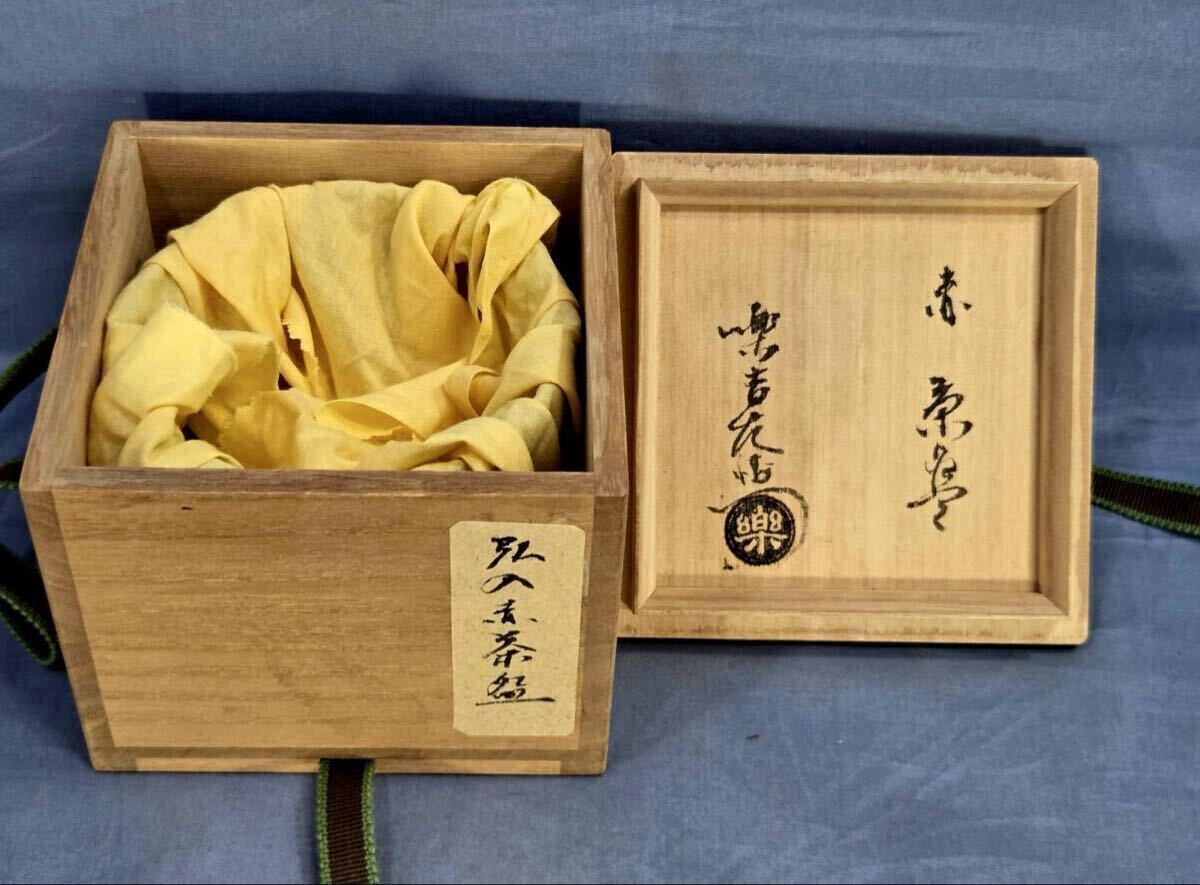 赤 茶碗
樂吉左衛門
樂
弘入赤茶盌